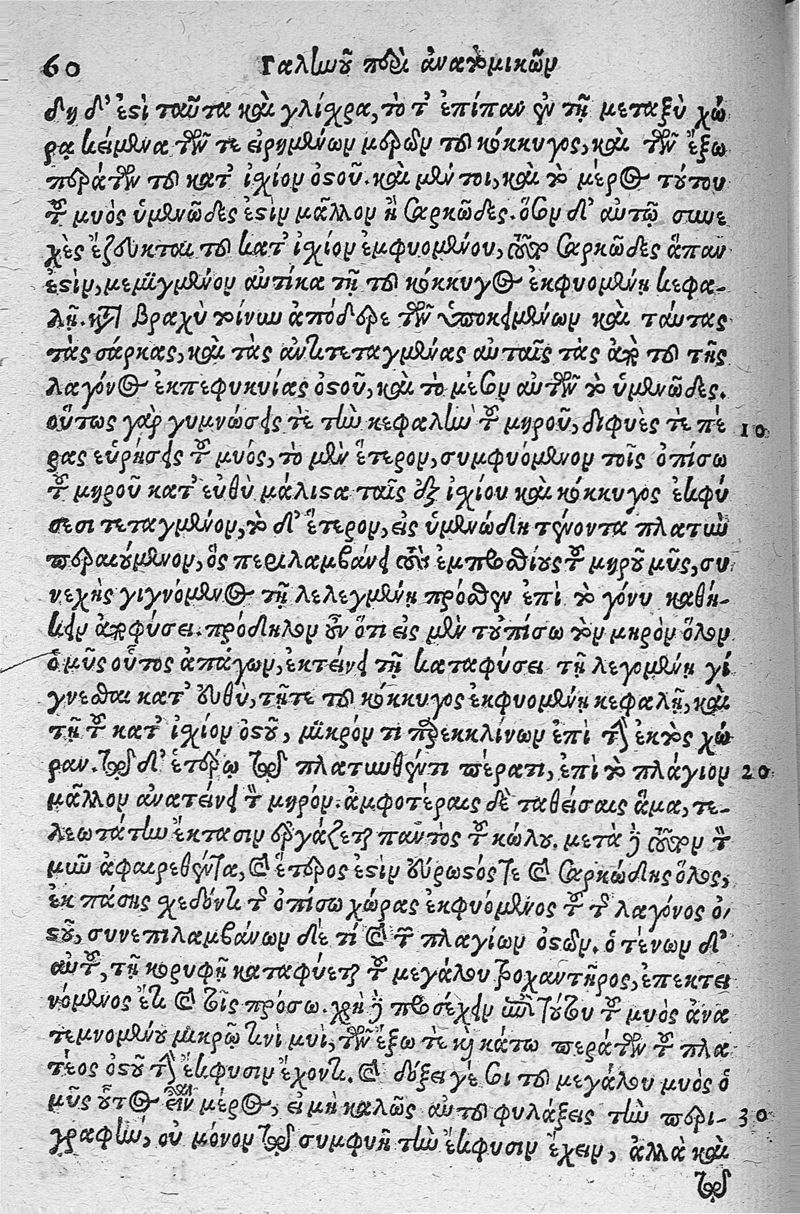 60 Γαληνοῦ περὶ ἀνατομικῶν
δη δ' ἐστὶ ταῦτα καὶ γλίχρα, τὸ τ' ἐπίπαν ἐν τῇ μεταξὺ χώ
ρᾳ κείμενα τῶν τε εἰρημένων μερῶν τοῦ κόκκυγος, καὶ τῶν ἔξω
περάτων τοῦ κατ' ἰχίον ὀστοῦ. καὶ μέν τοι, καὶ τὸ μέρος τούτου
τοῦ μυὸς ὑμενῶδές ἐστιν μᾶλλον ἢ σαρκῶδες. ὅσον δ' αὐτῷ συνε
χὲς ἔζευκται τοῦ κατ' ἰχίον ἐμφυομένου, σαρκῶδες ἅπαν
ἐστὶν, μεμιγμένον αὐτίκα τῇ τοῦ κόκκυγος ἐκφυομένῃ κεφα-
λῇ. κατὰ βραχὺ τοίνυν ἀπόδερε τῶν ὑποκειμένων καὶ ταύτας
τὰς σάρκας, καὶ τὰς ἀντιτεταγμένας αὐταῖς τὰς ἀπὸ τοῦ τῆς
λαγόνος ἐκπεφυκυίας ὀστοῦ, καὶ τὸ μέσον αὐτῶν τὸ ὑμενῶδες.
οὕτως γὰρ γυμνώσεις τε τὴν κεφαλὴν τοῦ μηροῦ, διφυὲς τε πέ 10
ρας εὑρήσεις τοῦ μυός, τὸ μὲν ἕτερον, συμφυόμενον τοῖς ὀπίσω
τοῦ μηροῦ κατ' εὐθὺ μάλιστα ταῖς ἐξ ἰχίου καὶ κόκκυγος ἐκφύ
σεσι τεταγμένον, τὸ δ' ἕτερον, εἰς ὑμενώδη τένοντα πλατὺν
περαιούμενον, ὃς περιλαμβάνει τοὺς ἐμπροσθίους τοῦ μηροῦ μῦς, συ
νεχὴς γιγνόμενος τῇ λελεγμένῃ πρόσθεν ἐπὶ τὸ γόνυ καθή-
κειν ἀποφύσει. πρόδηλον οὖν ὅτι εἰς μὲν τοὐπίσω τὸν μηρὸν ὅλον
ὁ μῦς οὗτος ἀπάγων, ἐκτείνει τῇ καταφύσει τῇ λεγομένῃ γί
γνεσθαι κατ' εὐθὺ, τῇτε τοῦ κόκκυγος ἐκφυομένῃ κεφαλῇ, καὶ
τῇ τοῦ κατ' ἰχίον ὀστοῦ, μικρόν τι παρεκκλίνων ἐπὶ τὴν ἐκτὸς χώ
ραν. τῷ δ' ἑτέρῳ τῷ πλατυνθέντι πέρατι, ἐπὶ τὸ πλάγιον 20
μᾶλλον ἀνατείνει τὸν μηρόν. ἀμφοτέραις δὲ ταθείσαις ἅμα, τε-
λεωτάτην ἔκτασιν ἐργάζεται παντὸς τοῦ κώλου. μετὰ δὲ τοῦτον τὸν
μῦν ἀφαιρεθέντα, καὶ ἕτερος ἐστὶν εὔρωστός τε καὶ σαρκώδης ὅλος,
ἐκ πάσης σχεδόν τι τῆς ὀπίσω χώρας ἐκφυόμενος τοῦ τῆς λαγόνος ὀ-
στοῦ, συνεπιλαμβάνων δέ τι καὶ τῶν πλαγίων ὀστῶν. ὁ τένων δ'
αὐτοῦ, τῇ κορυφῇ καταφύεται τοῦ μεγάλου τροχαντῆρος, ἐπεκτει
νόμενος ἔτι καὶ τοῖς πρόσω. χρὴ δὲ προσέχειν ἐπὶ τούτου τοῦ μυὸς ἀνα
τεμνομένου μικρῷ τινὶ μυὶ, τῶν ἔξω τε καὶ κάτω περάτων τοῦ πλα
τέος ὀστοῦ τὴν ἔκφυσιν ἔχοντι. καὶ δόξει γέ σοι τοῦ μεγάλου μυὸς ὁ
μῦς οὗτος εἶναι μέρος, εἰ μὴ καλῶς αὐτοῦ φυλάξεις τὴν περι- 30
γραφὴν, οὐ μόνον τῷ συμφυῆ τὴν ἔκφυσιν ἔχειν, ἀλλὰ καὶ
τῷ